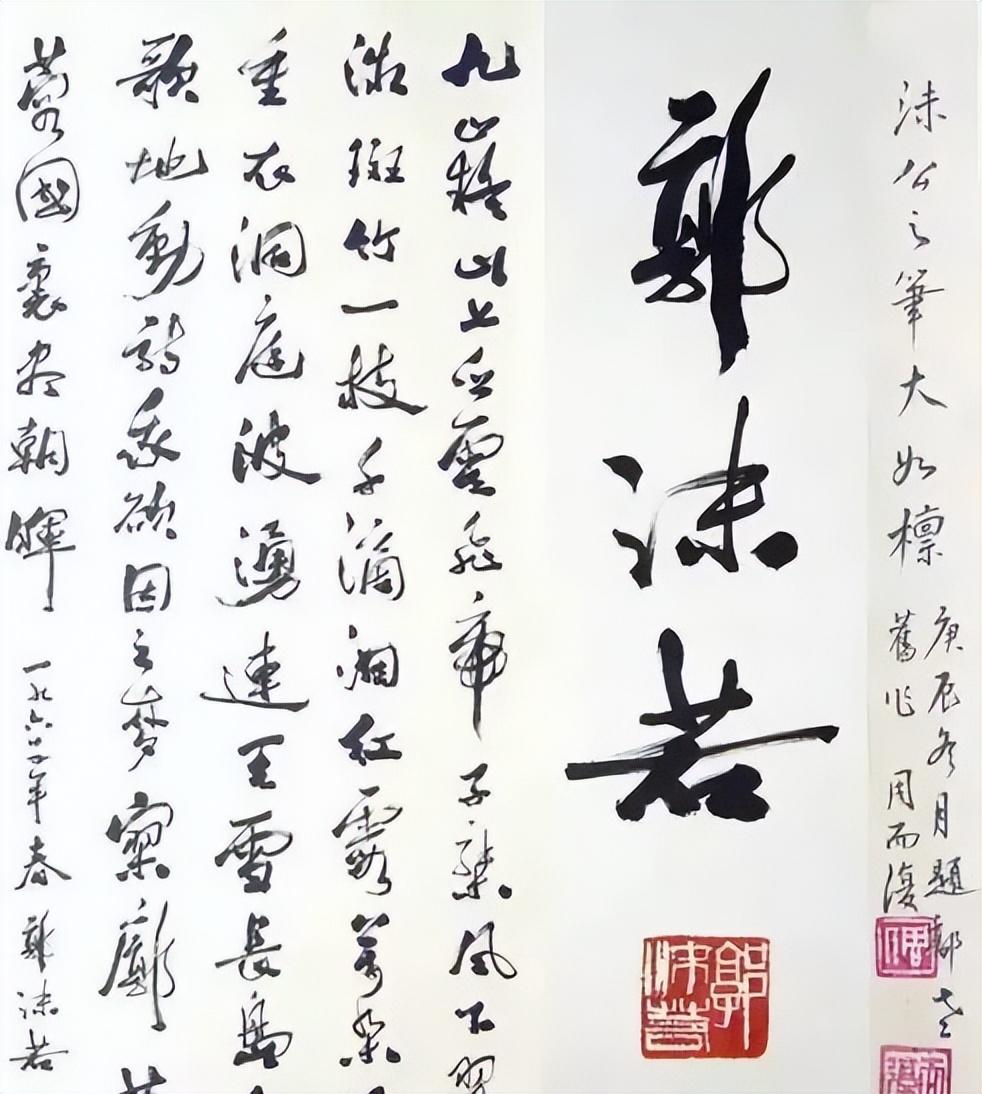 沫公之筆大如檁
庚辰冬月題郭老
舊作 周而復
郭沫若
郭沫若
九嶷山上白雲飛帝子乘風下
微斑竹一枝千滴泪紅霞萬朵
重衣洞庭波湧連天雪長島
歌地動詩我欲因之夢寥廓
蓉國裏盡朝暉 一九六年春 郭沫若